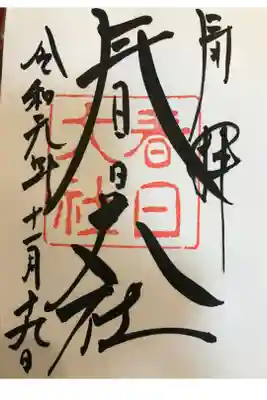 奉拝
春日大社
春日
大社
令和元年十一月十九日